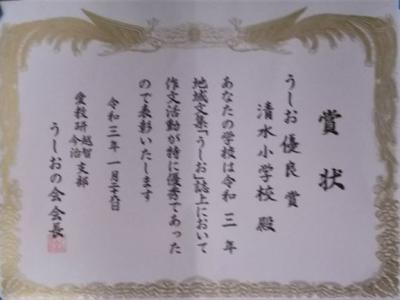 賞状
うしお優良賞
清水小学校 殿
あなたの学校は令和三年
地域文集「うしお」誌上において
作文活動が特に優秀であった
ので表彰いたします
令和三年一月
愛教研越智今治支部
うしおの会会長